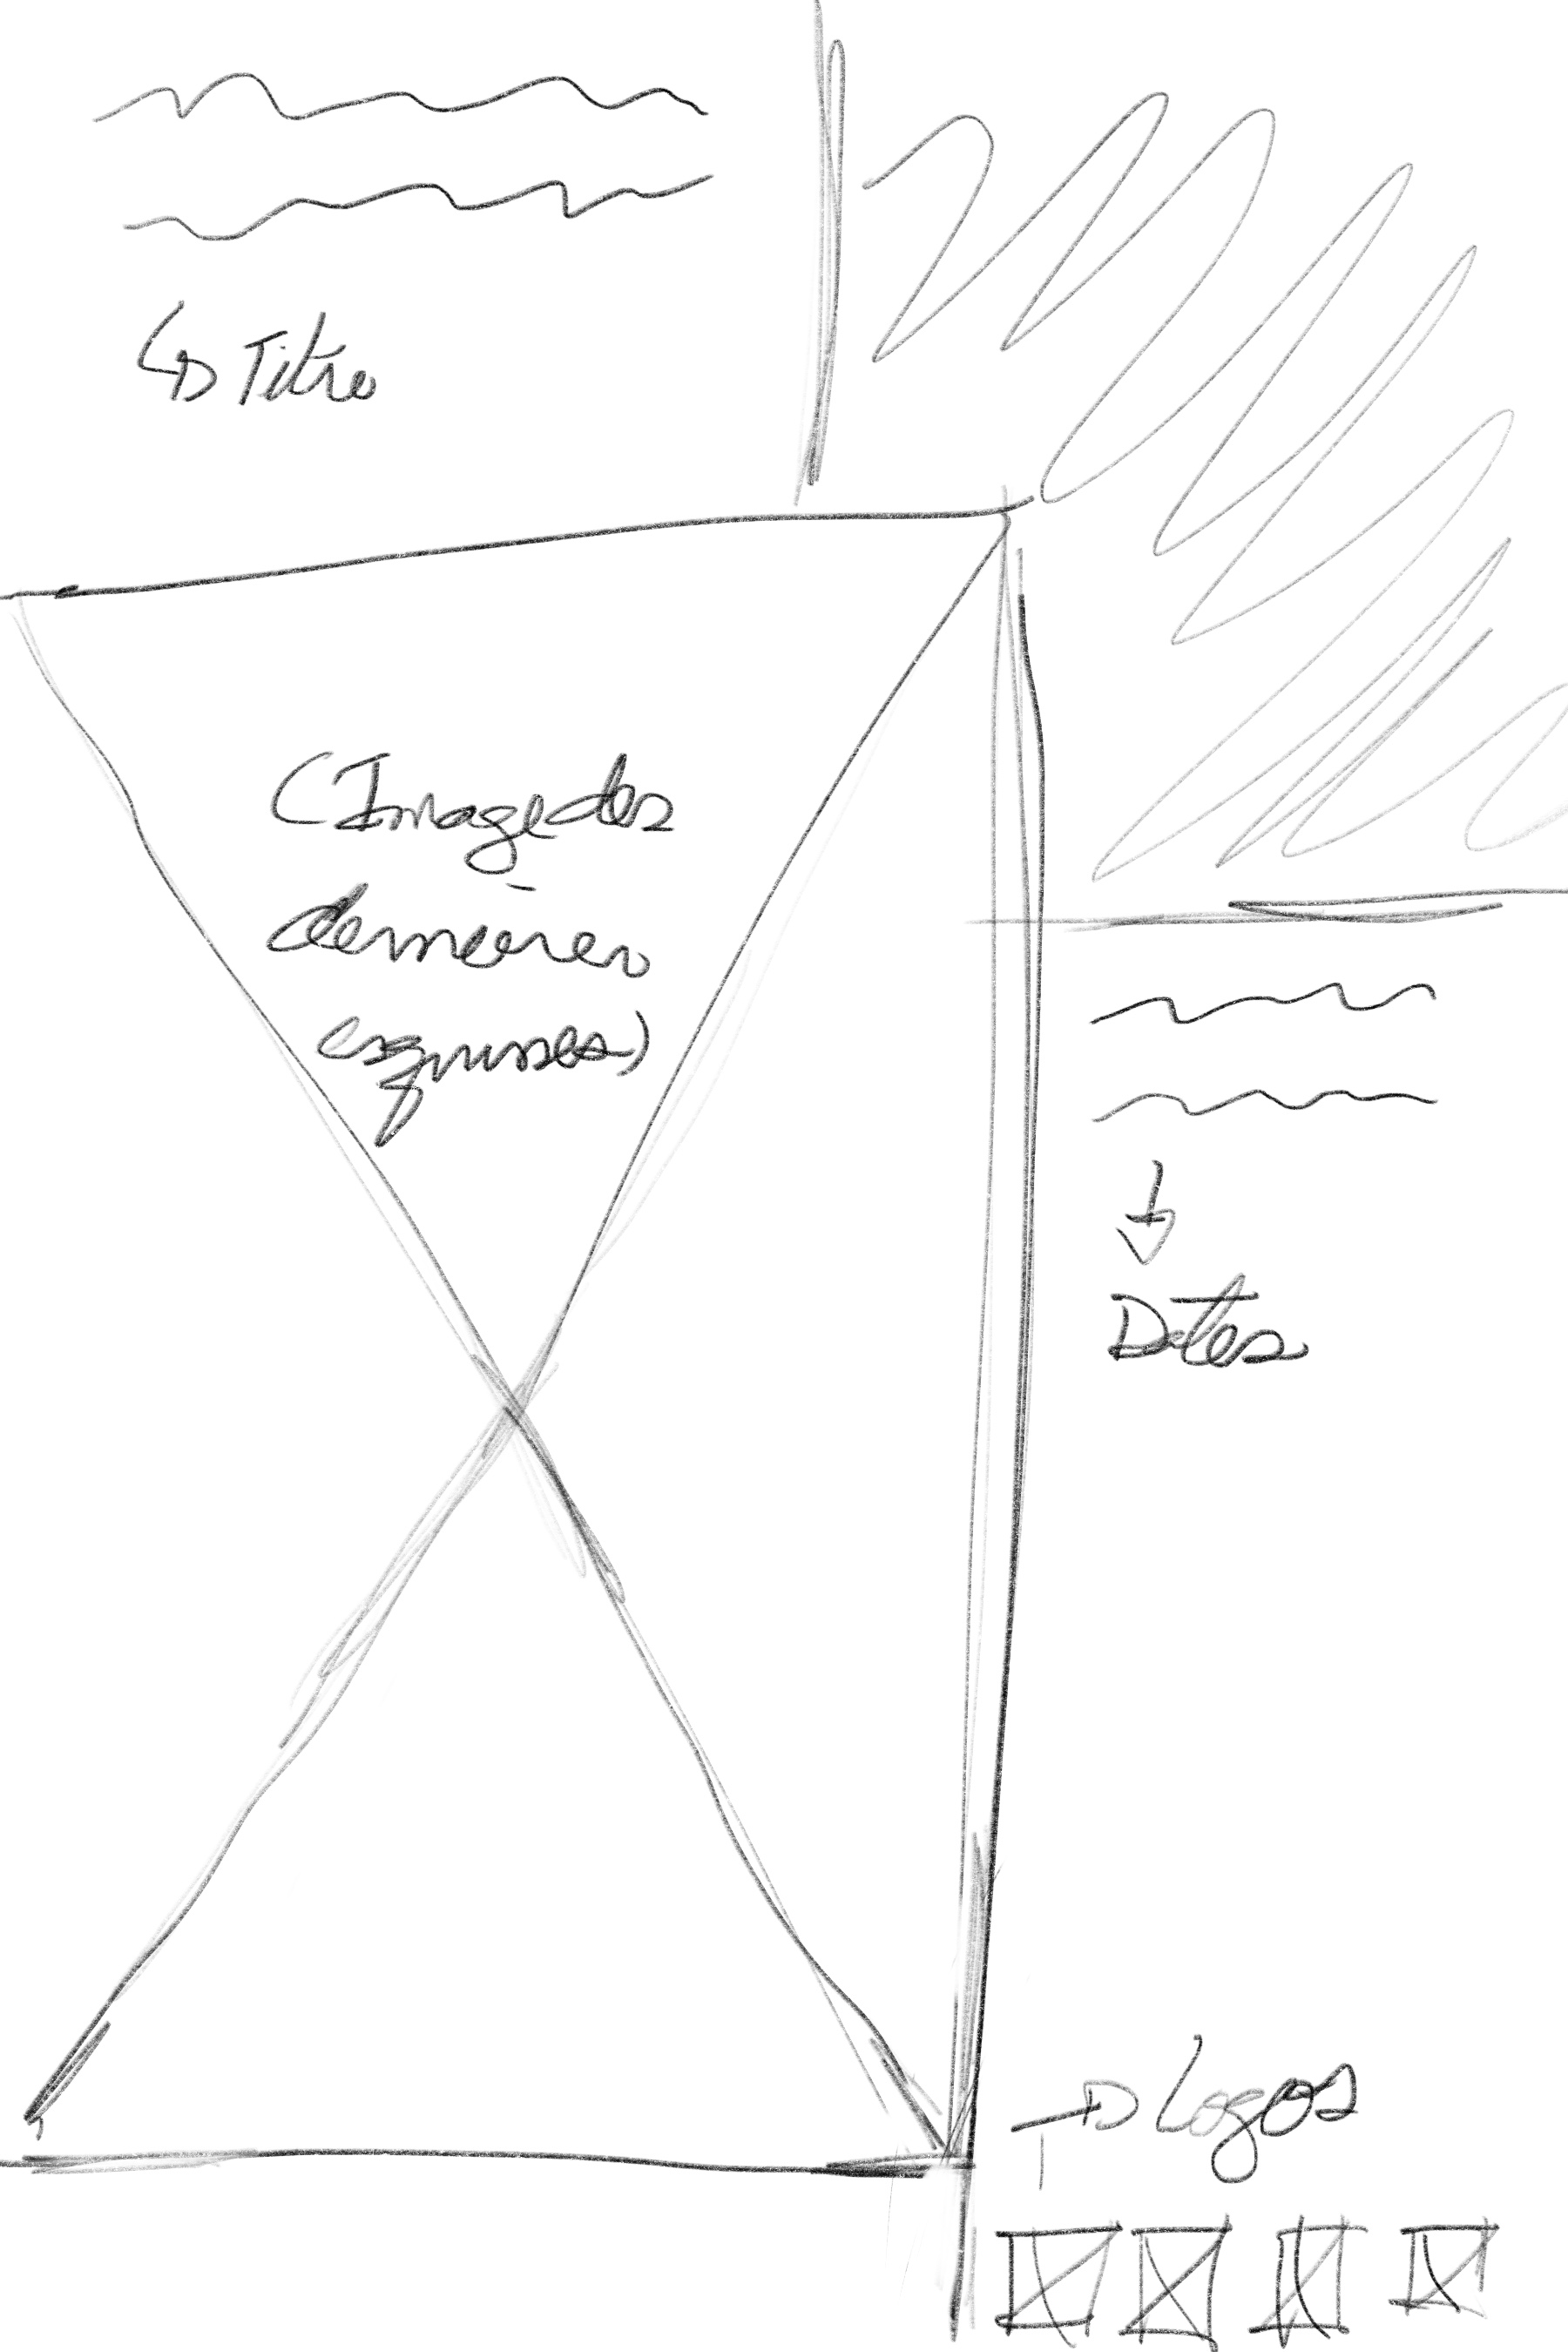 Titre
(Image des
dernières
esquisses)
Dates
Logos